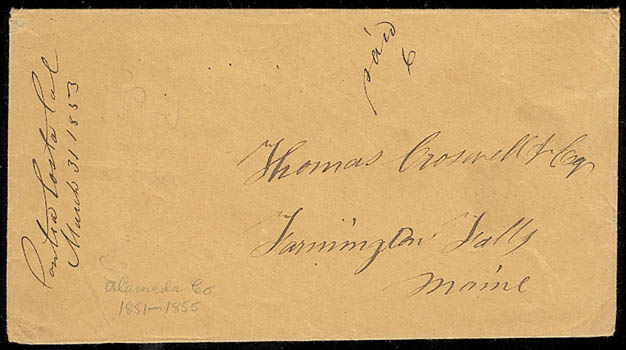 Contra Costa Cal
March 31 1853
Paid
6
Thomas Croswell & Co
Farmington Falls
Maine
Alameda Co
1851-1855